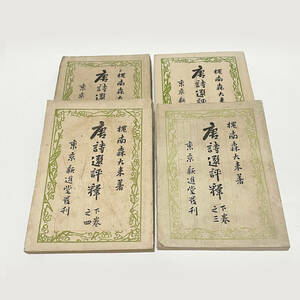 槐南森大来著
唐詩選
東京
槐南森大来著
唐詩選
東京新
槐南森大来著
唐詩選評釋
下巻之四
東京新進堂發刊
槐南森大来著
唐詩選評釋
下巻之三
東京新進堂發刊